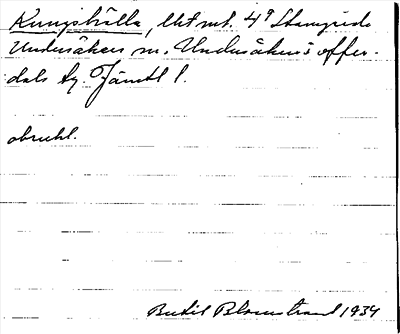 Kungshälla, lht nt. 4 g Stamgärde
Undersåkers sn. Undersåkers o offer-
dals tg Jämtl l.
obruhl.
Bertil Blomstrand 1934